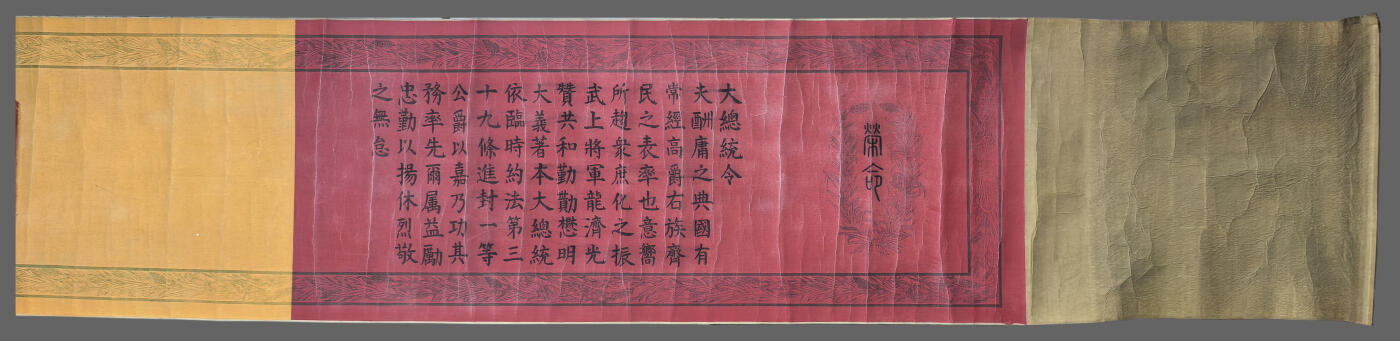 榮命
大總統令
夫酬庸之典國有
常經高爵右族齊
民之表率也意嚮
所趨衆庶化之振
武上將軍龍濟光
贊共和勤勳懋明
大義著本大總統
依臨時約法第三
十九條進封一等
公爵以嘉乃功其
務率先爾属益勵
忠勤以揚休烈敬
之無怠